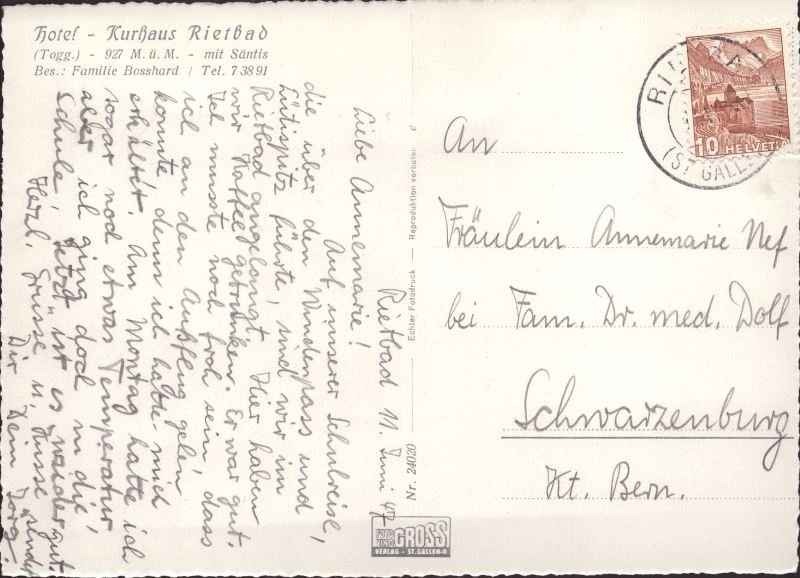 Hotel - Kurhaus Rietbad
(Togg.) - 927 M. ü. M. - mit Säntis
Bes.: Familie Bosshard / Tel. 7 38 91
Rietbad 11. Juni 47
Liebe Annemarie!
Auf unserer Schulreise,
die über den Windenpass und
Lütispitz führte, sind wir im
Rietbad angelangt. Hier haben
wir Kaffee getrunken. Er war gut.
Ich musste noch froh sein, dass
ich an den Ausflug gehen
konnte, denn ich hatte mich
erkältet. Am Montag hatte ich
sogar noch etwas Temperatur
aber ich ging doch in die
Schule, jetzt ist es wieder gut.
Herzl. Grüsse u. Küsse sendet
Dir Dein
Echter Fotodruck — Reproduktion verboten
Nr. 24020
FOTO KINO GROSS
VERLAG - ST. GALLEN-O
An
Fräulein Annemarie Nef
bei Fam. Dr. med. Dolf
Schwarzenburg
Kt. Bern.
10 HELVETIA
(ST. GALLEN)